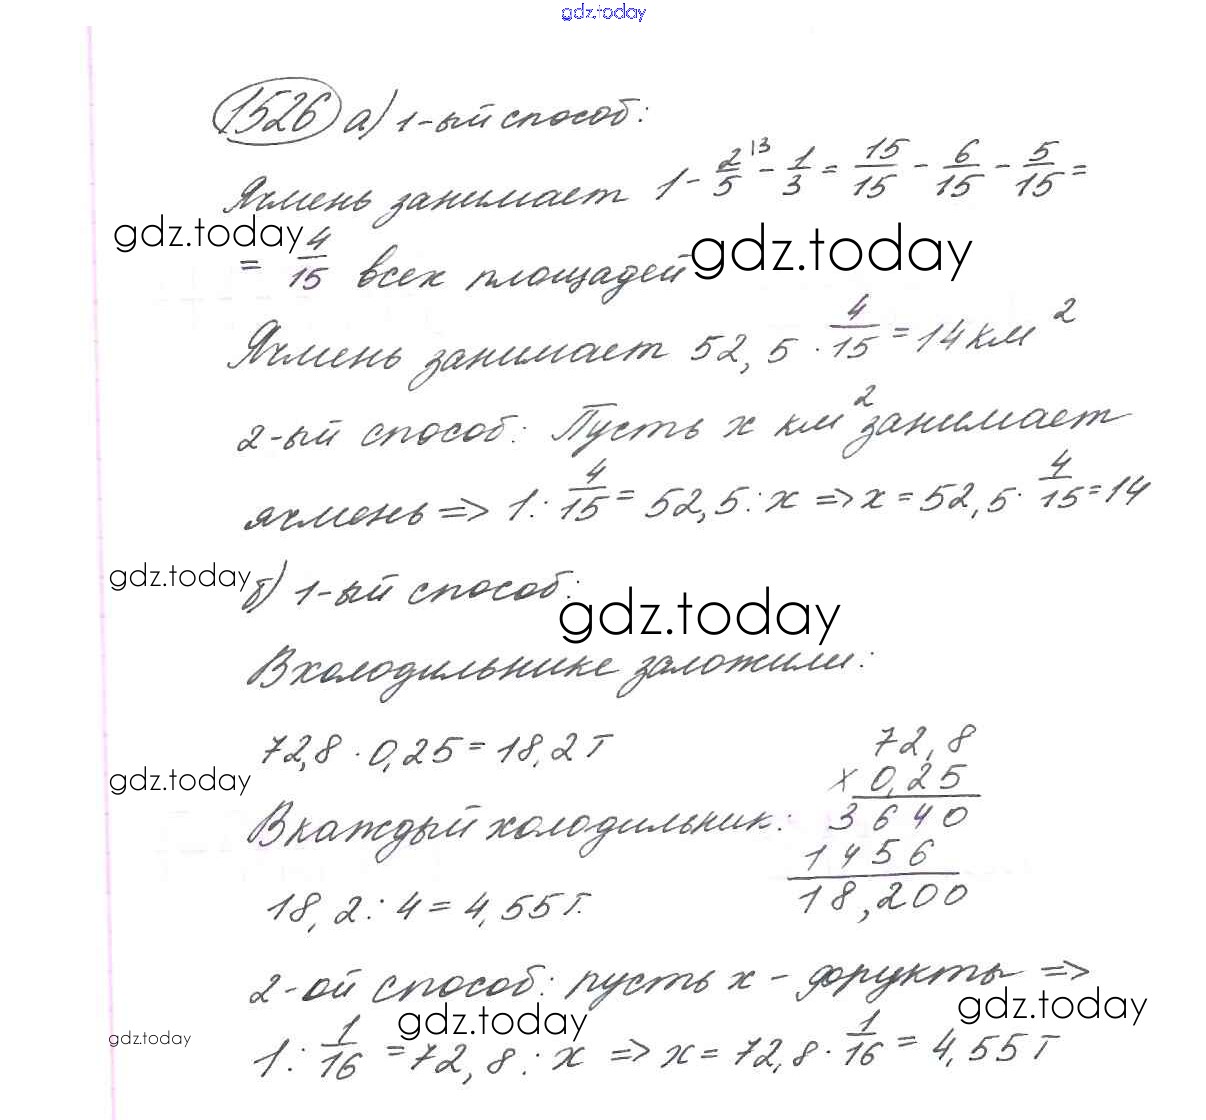 gdz.today
1526 а) 1-ый способ:
Ячмень занимает 1 - 2/5 \3 - 1/3 = 15/15 - 6/15 - 5/15 =
gdz.today
= 4/15 всех площадей
gdz.today
Ячмень занимает 52,5 · 4/15 = 14 км²
2-ый способ: Пусть х км² занимает
ячмень => 1 : 4/15 = 52,5 : х => х = 52,5 · 4/15 = 14
gdz.today
б) 1-ый способ:
gdz.today
В холодильнике заложили:
72,8 · 0,25 = 18,2 т
72,8
gdz.today
х 0,25
В каждый холодильник:
3640
1456
18,2 : 4 = 4,55 т.
18,200
2-ой способ: пусть х - фрукты =>
gdz.today
gdz.today
gdz.today
1 : 1/16 = 72,8 : х => х = 72,8 · 1/16 = 4,55 т